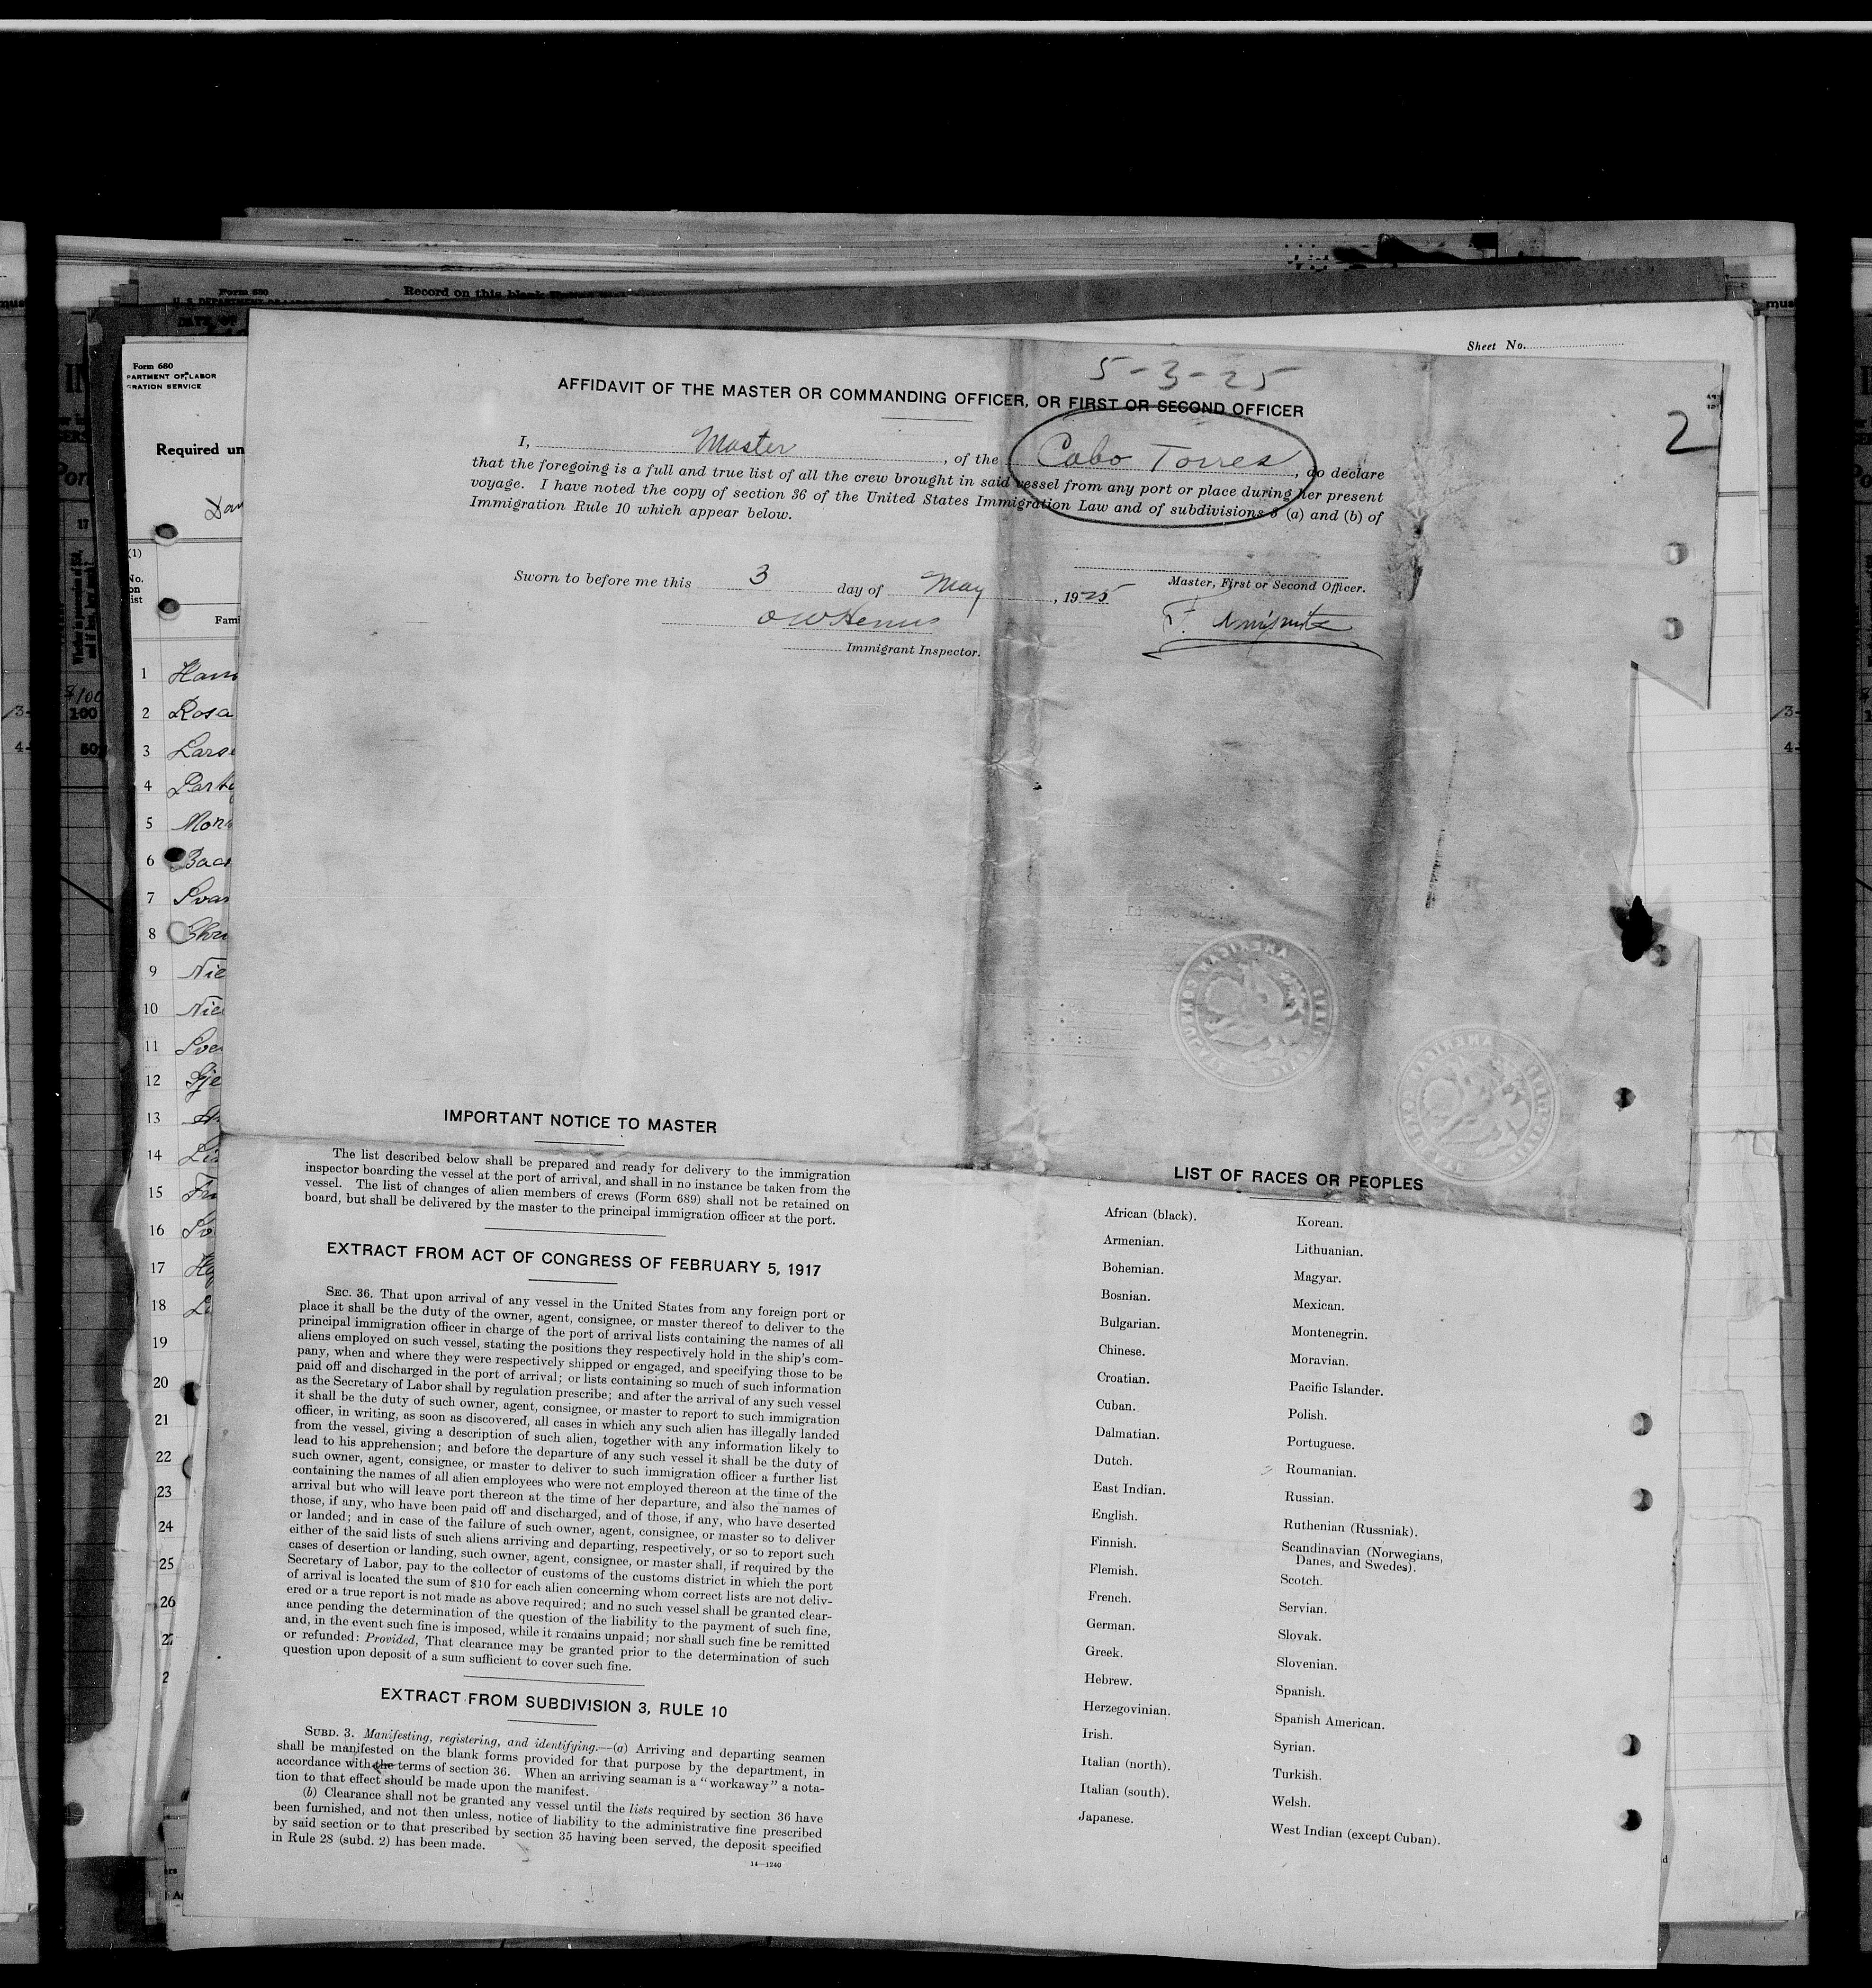 Form 680
U. S. DEPARTMENT OF LABOR
Record on this blank
Sheet No.
Form 680
PARTMENT OF LABOR
GRATION SERVICE
Required un
(1)
No.
on
ist
Fami
1 Hans
2 Rosa
3 Lars
4
5
6
7 Svan
8
9 Nie
10 Nie
11 Sve
12 Gje
13
14
15
16
17
18
19
20
21
22
23
24
25
26
27
2
5-3-25
2
AFFIDAVIT OF THE MASTER OR COMMANDING OFFICER, OR FIRST OR SECOND OFFICER
I, Master, of the Cabo Torres, do declare
that the foregoing is a full and true list of all the crew brought in said vessel from any port or place during her present
voyage. I have noted the copy of section 36 of the United States Immigration Law and of subdivisions 3 (a) and (b) of
Immigration Rule 10 which appear below.
Master, First or Second Officer.
Sworn to before me this 3 day of May, 1925
Immigrant Inspector.
IMPORTANT NOTICE TO MASTER
The list described below shall be prepared and ready for delivery to the immigration
inspector boarding the vessel at the port of arrival, and shall in no instance be taken from the
vessel. The list of changes of alien members of crews (Form 689) shall not be retained on
board, but shall be delivered by the master to the principal immigration officer at the port.
EXTRACT FROM ACT OF CONGRESS OF FEBRUARY 5, 1917
SEC. 36. That upon arrival of any vessel in the United States from any foreign port or
place it shall be the duty of the owner, agent, consignee, or master thereof to deliver to the
principal immigration officer in charge of the port of arrival lists containing the names of all
aliens employed on such vessel, stating the positions they respectively hold in the ship's com-
pany, when and where they were respectively shipped or engaged, and specifying those to be
paid off and discharged in the port of arrival; or lists containing so much of such information
as the Secretary of Labor shall by regulation prescribe; and after the arrival of any such vessel
it shall be the duty of such owner, agent, consignee, or master to report to such immigration
officer, in writing, as soon as discovered, all cases in which any such alien has illegally landed
from the vessel, giving a description of such alien, together with any information likely to
lead to his apprehension; and before the departure of any such vessel it shall be the duty of
such owner, agent, consignee, or master to deliver to such immigration officer a further list
containing the names of all alien employees who were not employed thereon at the time of the
arrival but who will leave port thereon at the time of her departure, and also the names of
those, if any, who have been paid off and discharged, and of those, if any, who have deserted
or landed; and in case of the failure of such owner, agent, consignee, or master so to deliver
either of the said lists of such aliens arriving and departing, respectively, or so to report such
cases of desertion or landing, such owner, agent, consignee, or master shall, if required by the
Secretary of Labor, pay to the collector of customs of the customs district in which the port
of arrival is located the sum of $10 for each alien concerning whom correct lists are not deliv-
ered or a true report is not made as above required; and no such vessel shall be granted clear-
ance pending the determination of the question of the liability to the payment of such fine,
and, in the event such fine is imposed, while it remains unpaid; nor shall such fine be remitted
or refunded: Provided, That clearance may be granted prior to the determination of such
question upon deposit of a sum sufficient to cover such fine.
EXTRACT FROM SUBDIVISION 3, RULE 10
SUBD. 3. Manifesting, registering, and identifying.—(a) Arriving and departing seamen
shall be manifested on the blank forms provided for that purpose by the department, in
accordance with the terms of section 36. When an arriving seaman is a "workaway" a nota-
tion to that effect should be made upon the manifest.
(b) Clearance shall not be granted any vessel until the lists required by section 36 have
been furnished, and not then unless, notice of liability to the administrative fine prescribed
by said section or to that prescribed by section 35 having been served, the deposit specified
in Rule 28 (subd. 2) has been made.
14—1240
LIST OF RACES OR PEOPLES
African (black).
Armenian.
Bohemian.
Bosnian.
Bulgarian.
Chinese.
Croatian.
Cuban.
Dalmatian.
Dutch.
East Indian.
English.
Finnish.
Flemish.
French.
German.
Greek.
Hebrew.
Herzegovinian.
Irish.
Italian (north).
Italian (south).
Japanese.
Korean.
Lithuanian.
Magyar.
Mexican.
Montenegrin.
Moravian.
Pacific Islander.
Polish.
Portuguese.
Roumanian.
Russian.
Ruthenian (Russniak).
Scandinavian (Norwegians,
Danes, and Swedes).
Scotch.
Servian.
Slovak.
Slovenian.
Spanish.
Spanish American.
Syrian.
Turkish.
Welsh.
West Indian (except Cuban).